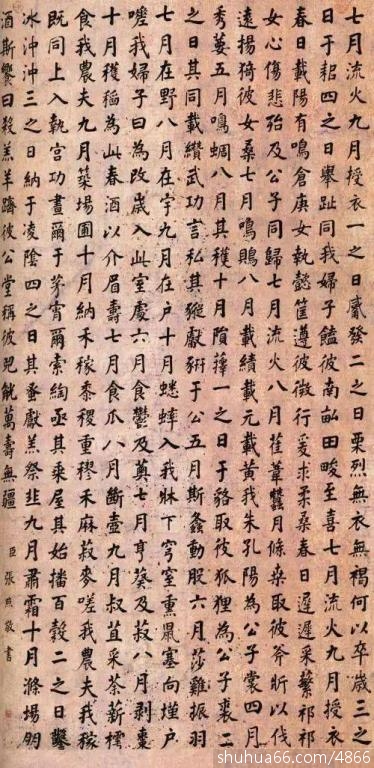 七月流火九月授衣一之日觱發二之日栗烈無衣無褐何以卒歲三之
日于耜四之日舉趾同我婦子饁彼南畝田畯至喜七月流火九月授衣
春日載陽有鳴倉庚女執懿筐遵彼微行爰求柔桑春日遲遲采蘩祁祁
女心傷悲殆及公子同歸七月流火八月萑葦蠶月條桑取彼斧斨以伐
遠揚猗彼女桑七月鳴鵙八月載績載元載黃我朱孔陽為公子裳四月
秀葽五月鳴蜩八月其穫十月隕蘀一之日于貉取彼狐狸為公子裘二
之日其同載纘武功言私其豵獻豜于公五月斯螽動股六月莎雞振羽
七月在野八月在宇九月在戶十月蟋蟀入我牀下穹窒熏鼠塞向墐戶
嗟我婦子曰為改歲入此室處六月食鬱及薁七月亨葵及菽八月剝棗
十月穫稻為此春酒以介眉壽七月食瓜八月斷壺九月叔苴采荼薪樗
食我農夫九月築場圃十月納禾稼黍稷重穋禾麻菽麥嗟我農夫我稼
既同上入執宮功晝爾于茅宵爾索綯亟其乘屋其始播百穀二之日鑿
冰沖沖三之日納于凌陰四之日其蚤獻羔祭韭九月肅霜十月滌場朋
酒斯饗曰殺羔羊躋彼公堂稱彼兕觥萬壽無疆 臣張照敬書
shuhua66.com/4866